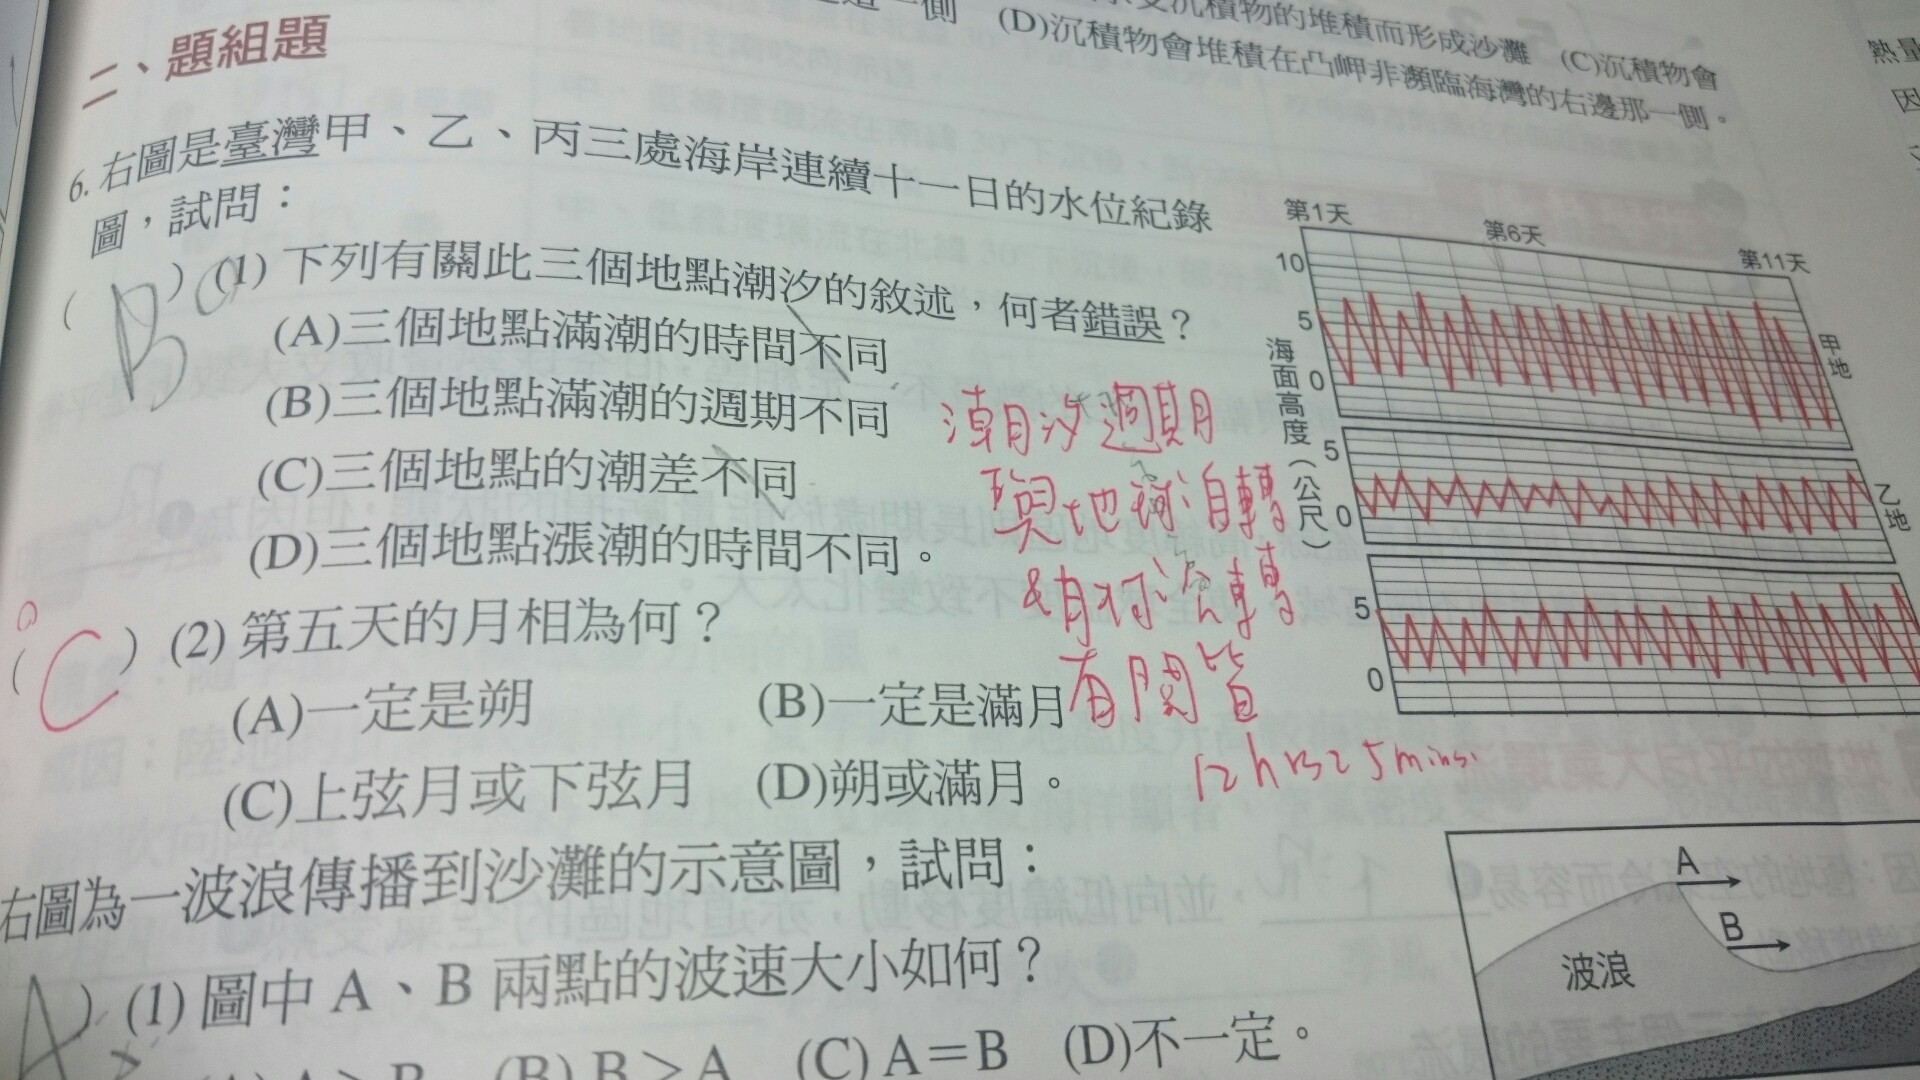 積物的堆積而形成沙灘 (C)沉積物會
側 (D)沉積物會堆積在凸岬非瀕臨海灣的右邊那一側。
二、題組題
6. 右圖是臺灣甲、乙、丙三處海岸連續十一日的水位紀錄
圖,試問:
( B ) (1) 下列有關此三個地點潮汐的敘述,何者錯誤?
(A)三個地點滿潮的時間不同
(B)三個地點滿潮的週期不同
(C)三個地點的潮差不同
(D)三個地點漲潮的時間不同。
潮汐週期
與地球自轉
月球公轉
有關皆
12hrs25mins.
( C ) (2) 第五天的月相為何?
(A)一定是朔 (B)一定是滿月
(C)上弦月或下弦月 (D)朔或滿月。
第1天 第6天 第11天
10
5
0
甲地
5
0
乙地
5
0
海面高度(公尺)
右圖為一波浪傳播到沙灘的示意圖,試問:
A ) (1) 圖中 A、B 兩點的波速大小如何?
(A) A>B (B) B>A (C) A=B (D)不一定。
A
B
波浪
熱量
因